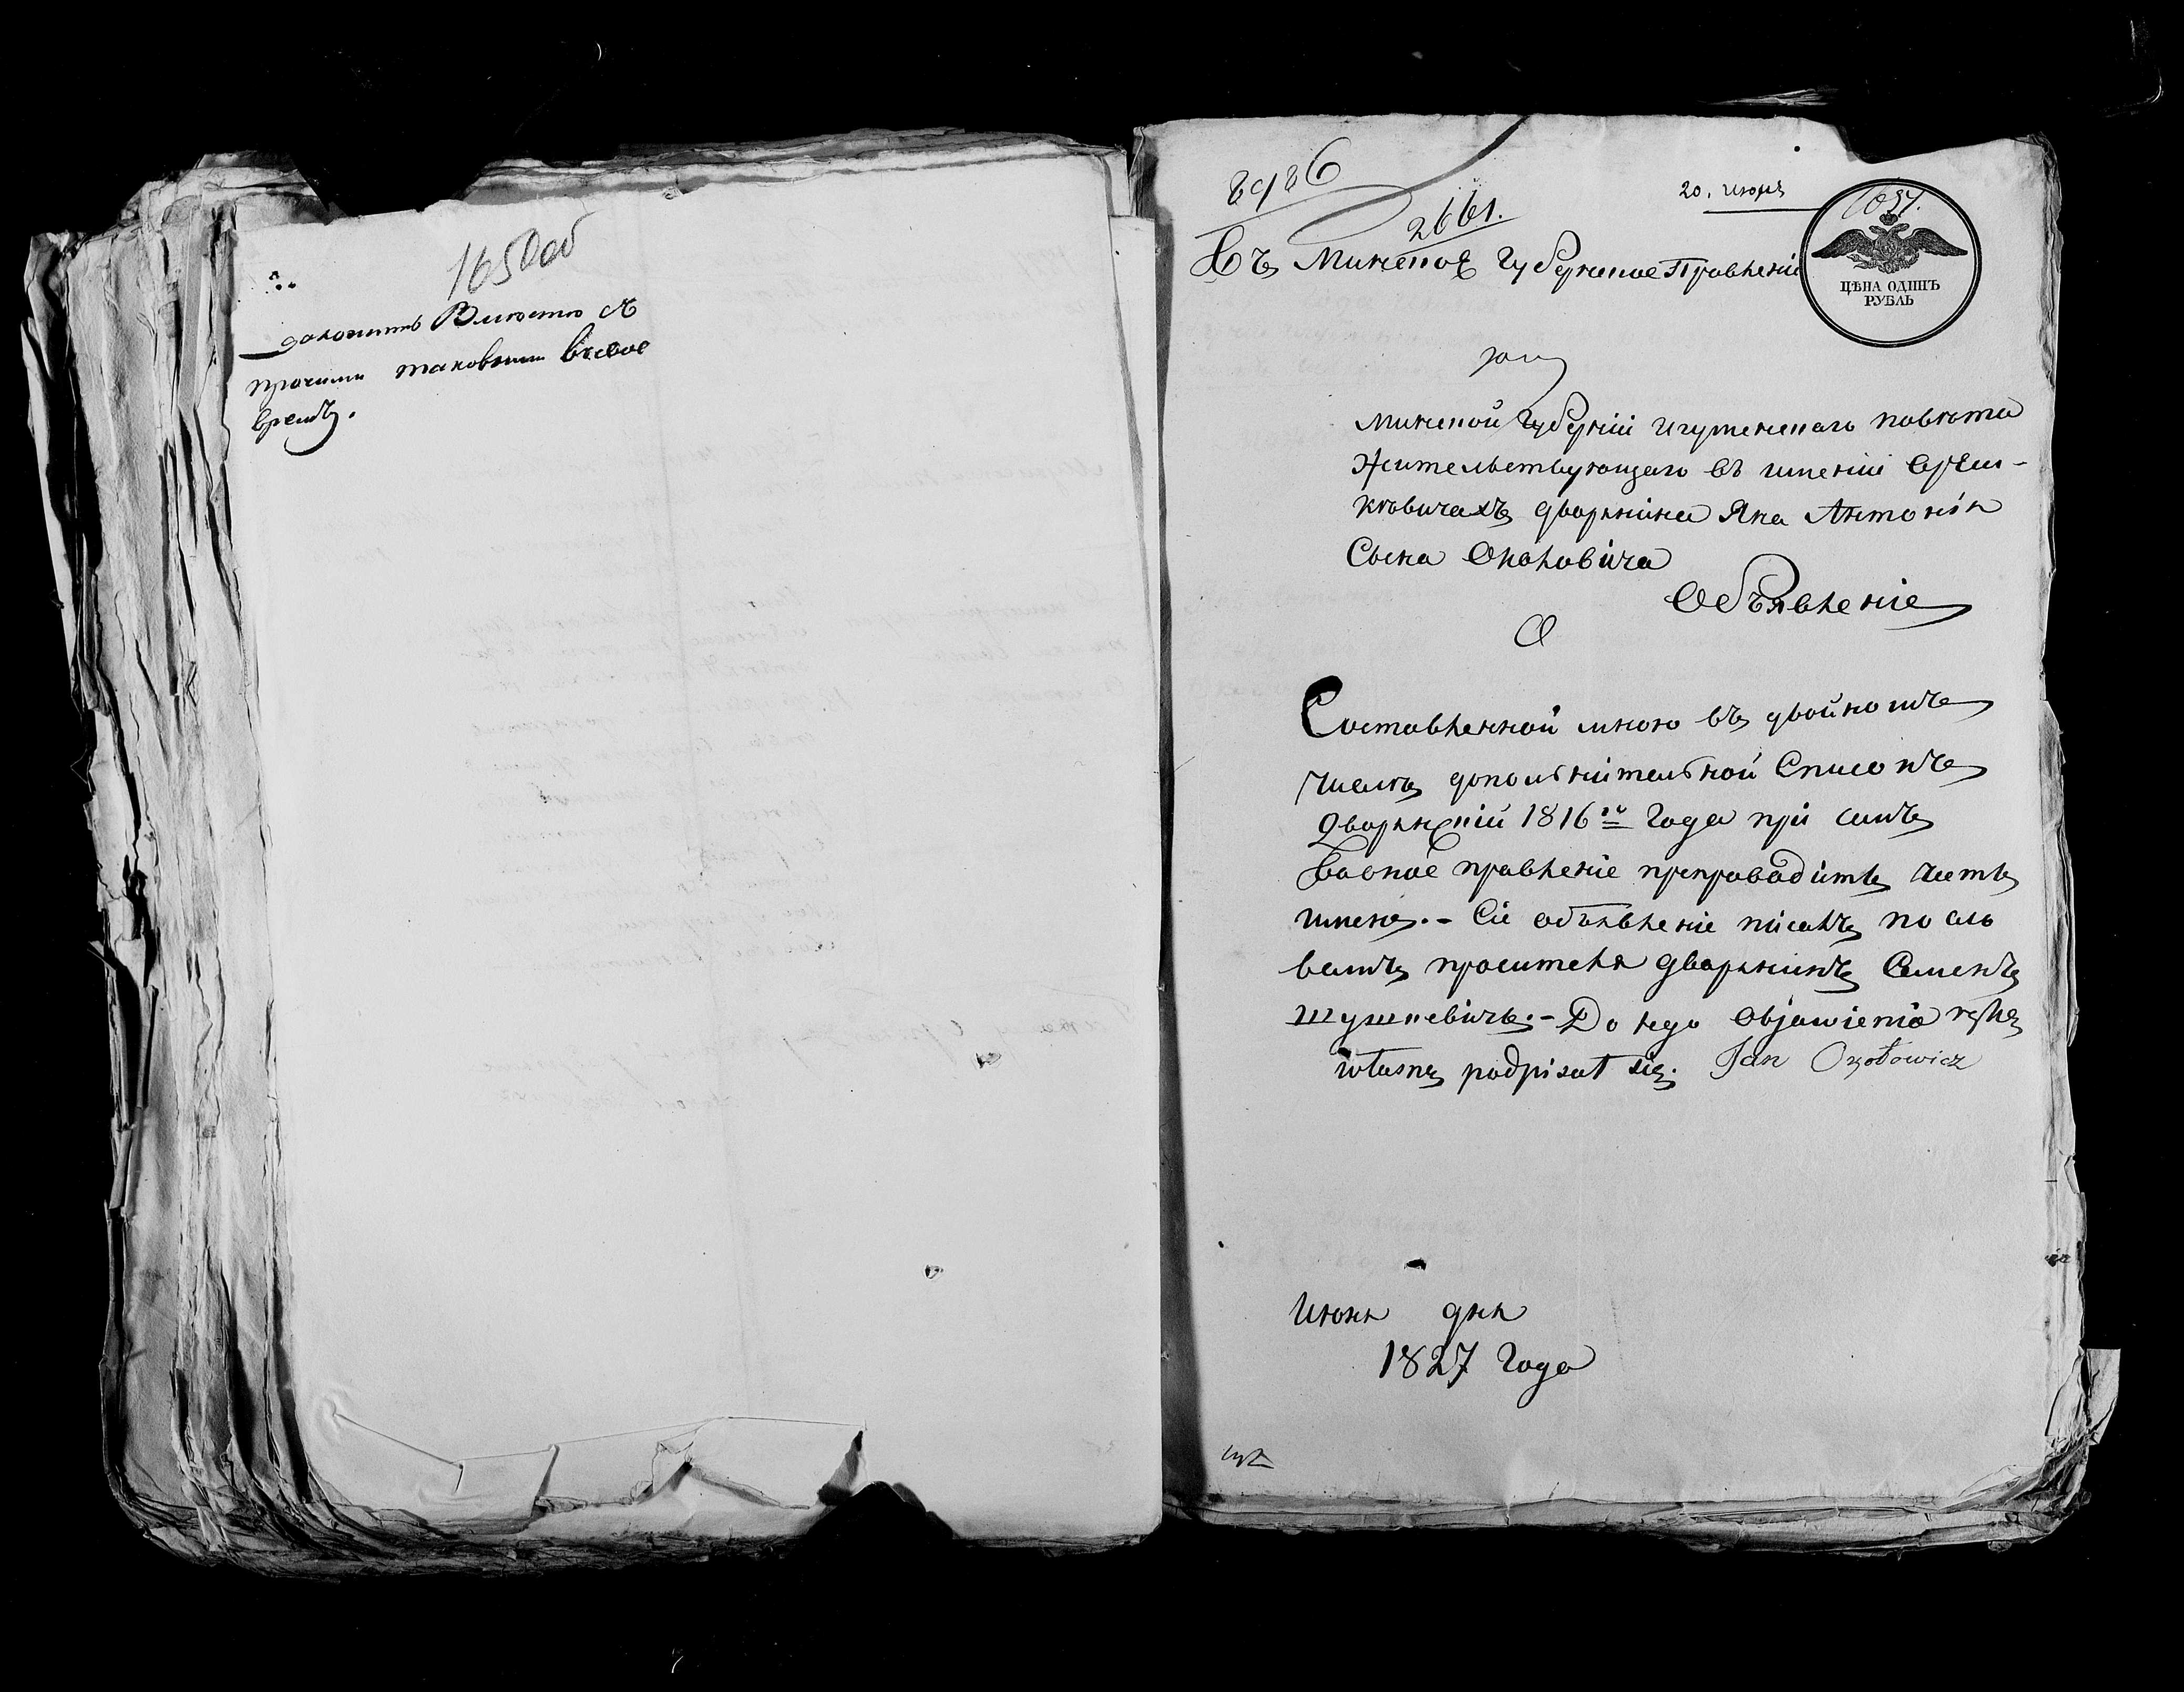 165 об
доложить Вместе съ
прочими таковыми в свое
время.
8986
2661.
20. июня
1657.
ЦѢНА ОДИНЪ
РУБЛЬ
Въ Минское Губернское Правленіе
Минской Губерніи Игуменскаго повѣта
Жительствующаго въ имѣніи
дворянина Яна Антонія
Сына
Объявленіе
О
Составленной мною въ двойномъ
числѣ дополнительной Списокъ
Дворянскій 1816го Года при семъ
правленіе препроводить честь
имею. - Сіе объявленіе писалъ по сло
вамъ просителя дворянинъ Семенъ
Шушкевичь. - Do tego Objawienia ręką
własną podpisał się. Jan Ozołowicz
Июня дня
1827 Года